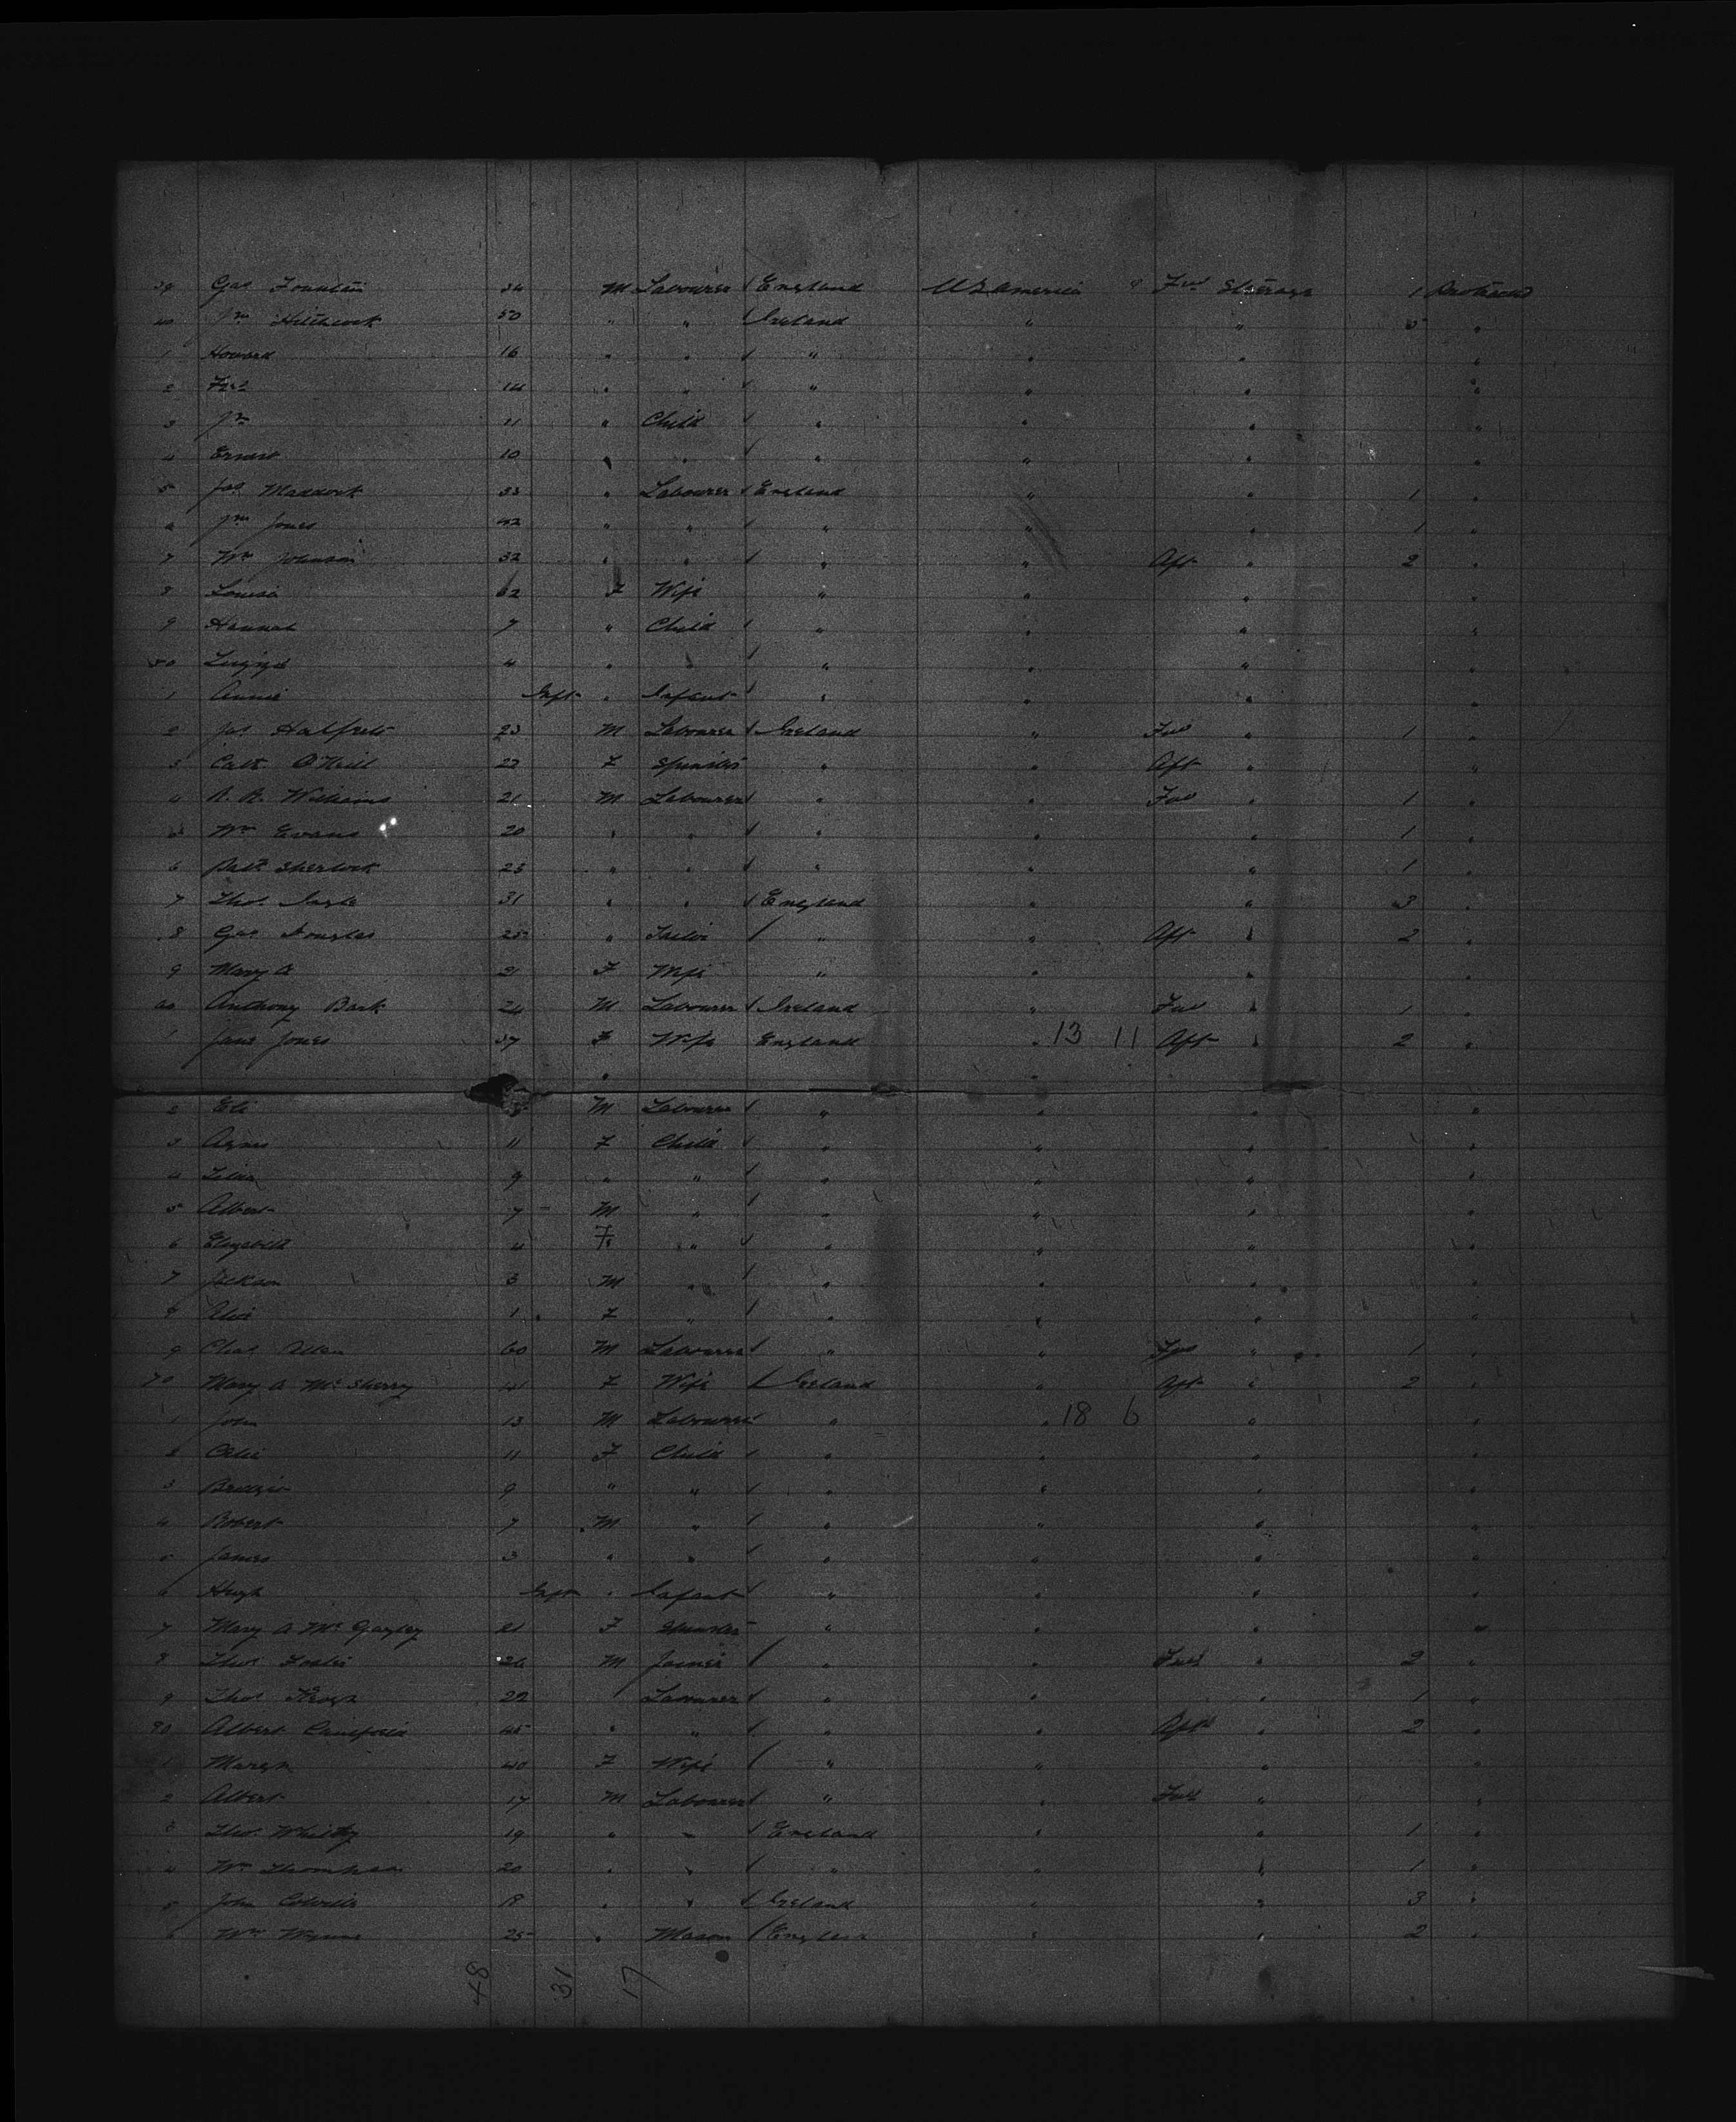 39 Geo Fountain 34 M Labourer / England US America " Fwd Steerage 1
40 Jno Hitchcock 50 " " / Ireland " " 5 "
1 Howard 16 " " / " " " "
2 Fred 14 " " / " " " "
3 Jno 11 " Child / " " " "
4 Ernest 10 " " / " " " "
5 Jas Maddock 33 " Labourer / England " " 1 "
6 Jno Jones 42 " " / " " " 1 "
7 Wm Johnson 32 " " / " " Aft " 2 "
8 Louisa 32 F Wife " " " "
9 Hannah 7 " Child / " " " "
50 Lizzie 4 " " / " " " "
1 Annie Inft " Infant / " " " "
2 Jas 23 M Labourer / Ireland " Fwd " 1 "
3 Cath O'Neill 22 F Spinster " " Aft " "
4 R. R. Williams 21 M Labourer / " " Fwd " 1 "
5 Wm Evans 20 " " / " " " 1 "
6 Patk Sherlock 23 " " / " " " 1 "
7 Thos 31 " " / England " " 3 "
8 Geo Douglas 25 " Tailor / " " Aft " 2 "
9 Mary A 21 F Wife " " " "
60 Anthony Bark 24 M Labourer / Ireland " Fwd " 1 "
1 Jane Jones 37 F Wife England " 13 11 Aft " 2 "
2 Eli M Labourer / " " " "
3 Agnes 11 F Child / " " " "
4 9 " " / " " " "
5 Albert 7 M " / " " " "
6 Elizabeth 4 F " / " " " "
7 Jackson 3 M " / " " " "
8 Alice 1 F " / " " " "
9 Chas Allen 60 M Labourer / " " Fwd " 1 "
70 Mary A McSherry 41 F Wife / Ireland " Aft " 2 "
1 John 13 M Labourer / " " 18 6 " "
2 11 F Child / " " " "
3 9 " " / " " " "
4 Robert 7 M " / " " " "
5 James 3 " " / " " " "
6 Hugh Inft " Infant / " " " "
7 Mary A 21 F Spinster " " " "
8 Thos 26 M Joiner / " " Fwd " 2 "
9 Thos 22 Labourer / " " " 1 "
80 Albert 45 " " / " " Aft " 2 "
1 40 F Wife / " " " "
2 Albert 17 M Labourer / " " Fwd " "
3 Thos 19 " " / England " " 1 "
4 Wm Thompson 20 " " / " " " 1 "
5 John 18 " " / Ireland " " 3 "
6 Wm Wynne 25 " Mason / England " " 2 "
48 31 17